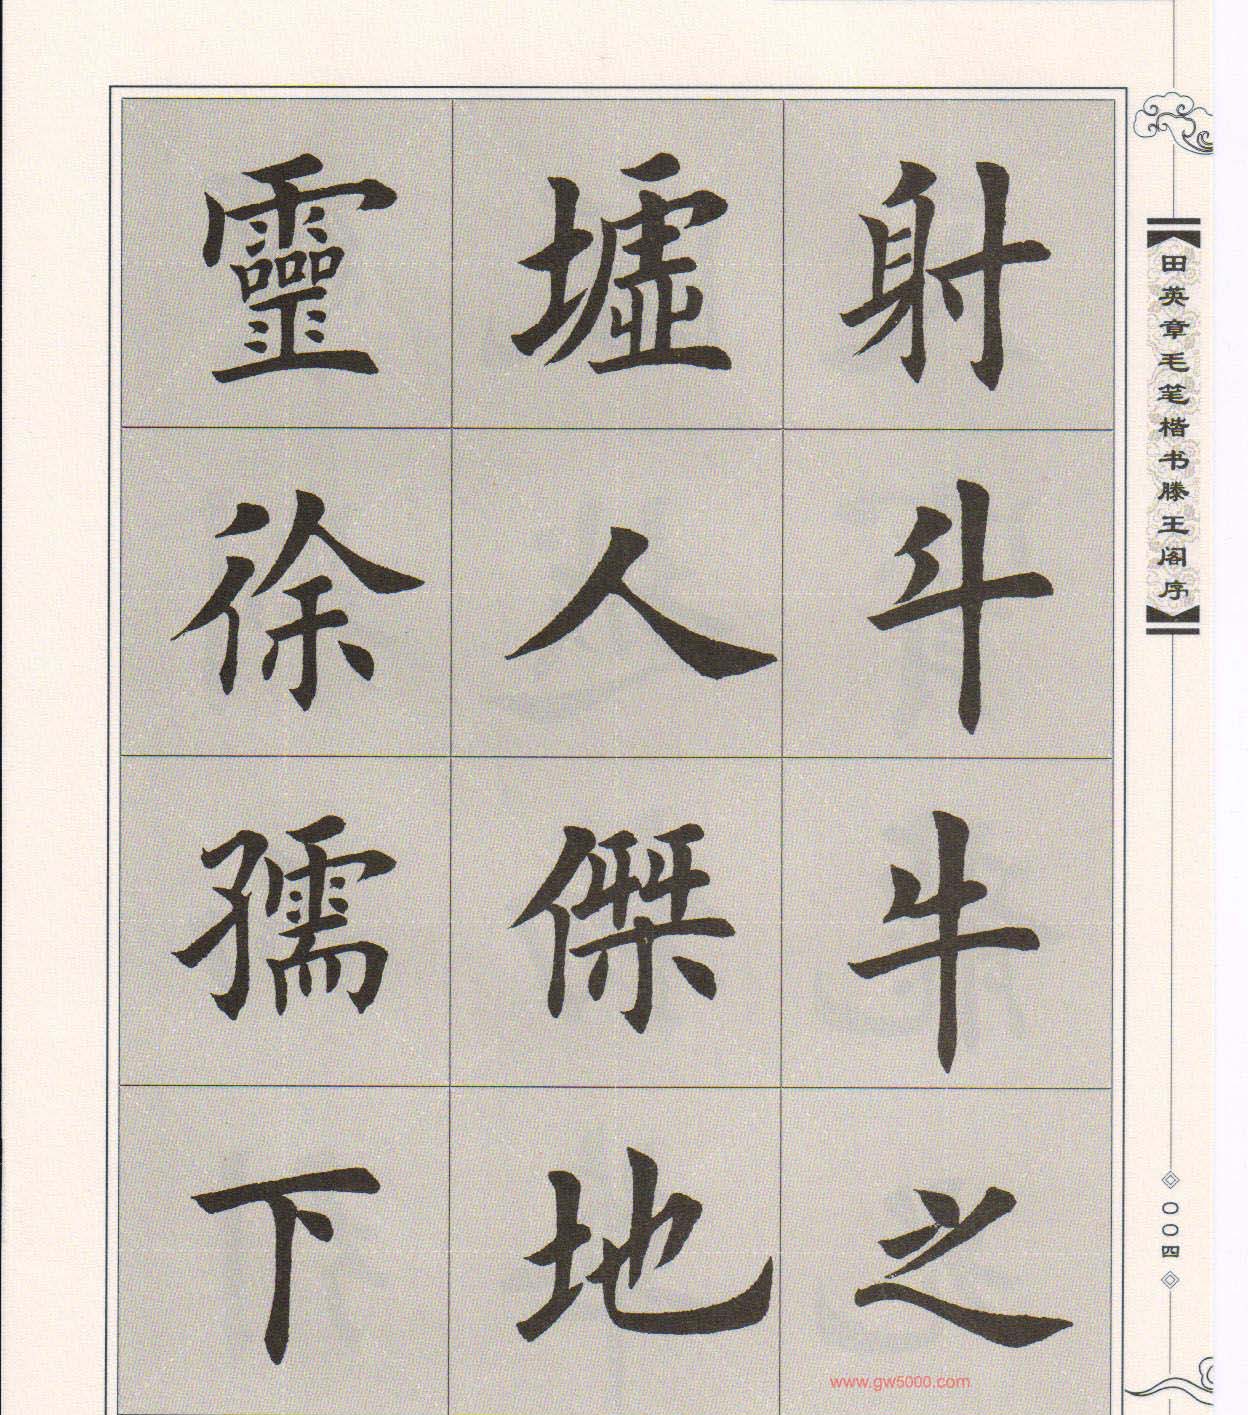 射斗牛之
墟人傑地
靈徐孺下
田英章毛笔楷书滕王阁序
〇〇四
www.gw5000.com